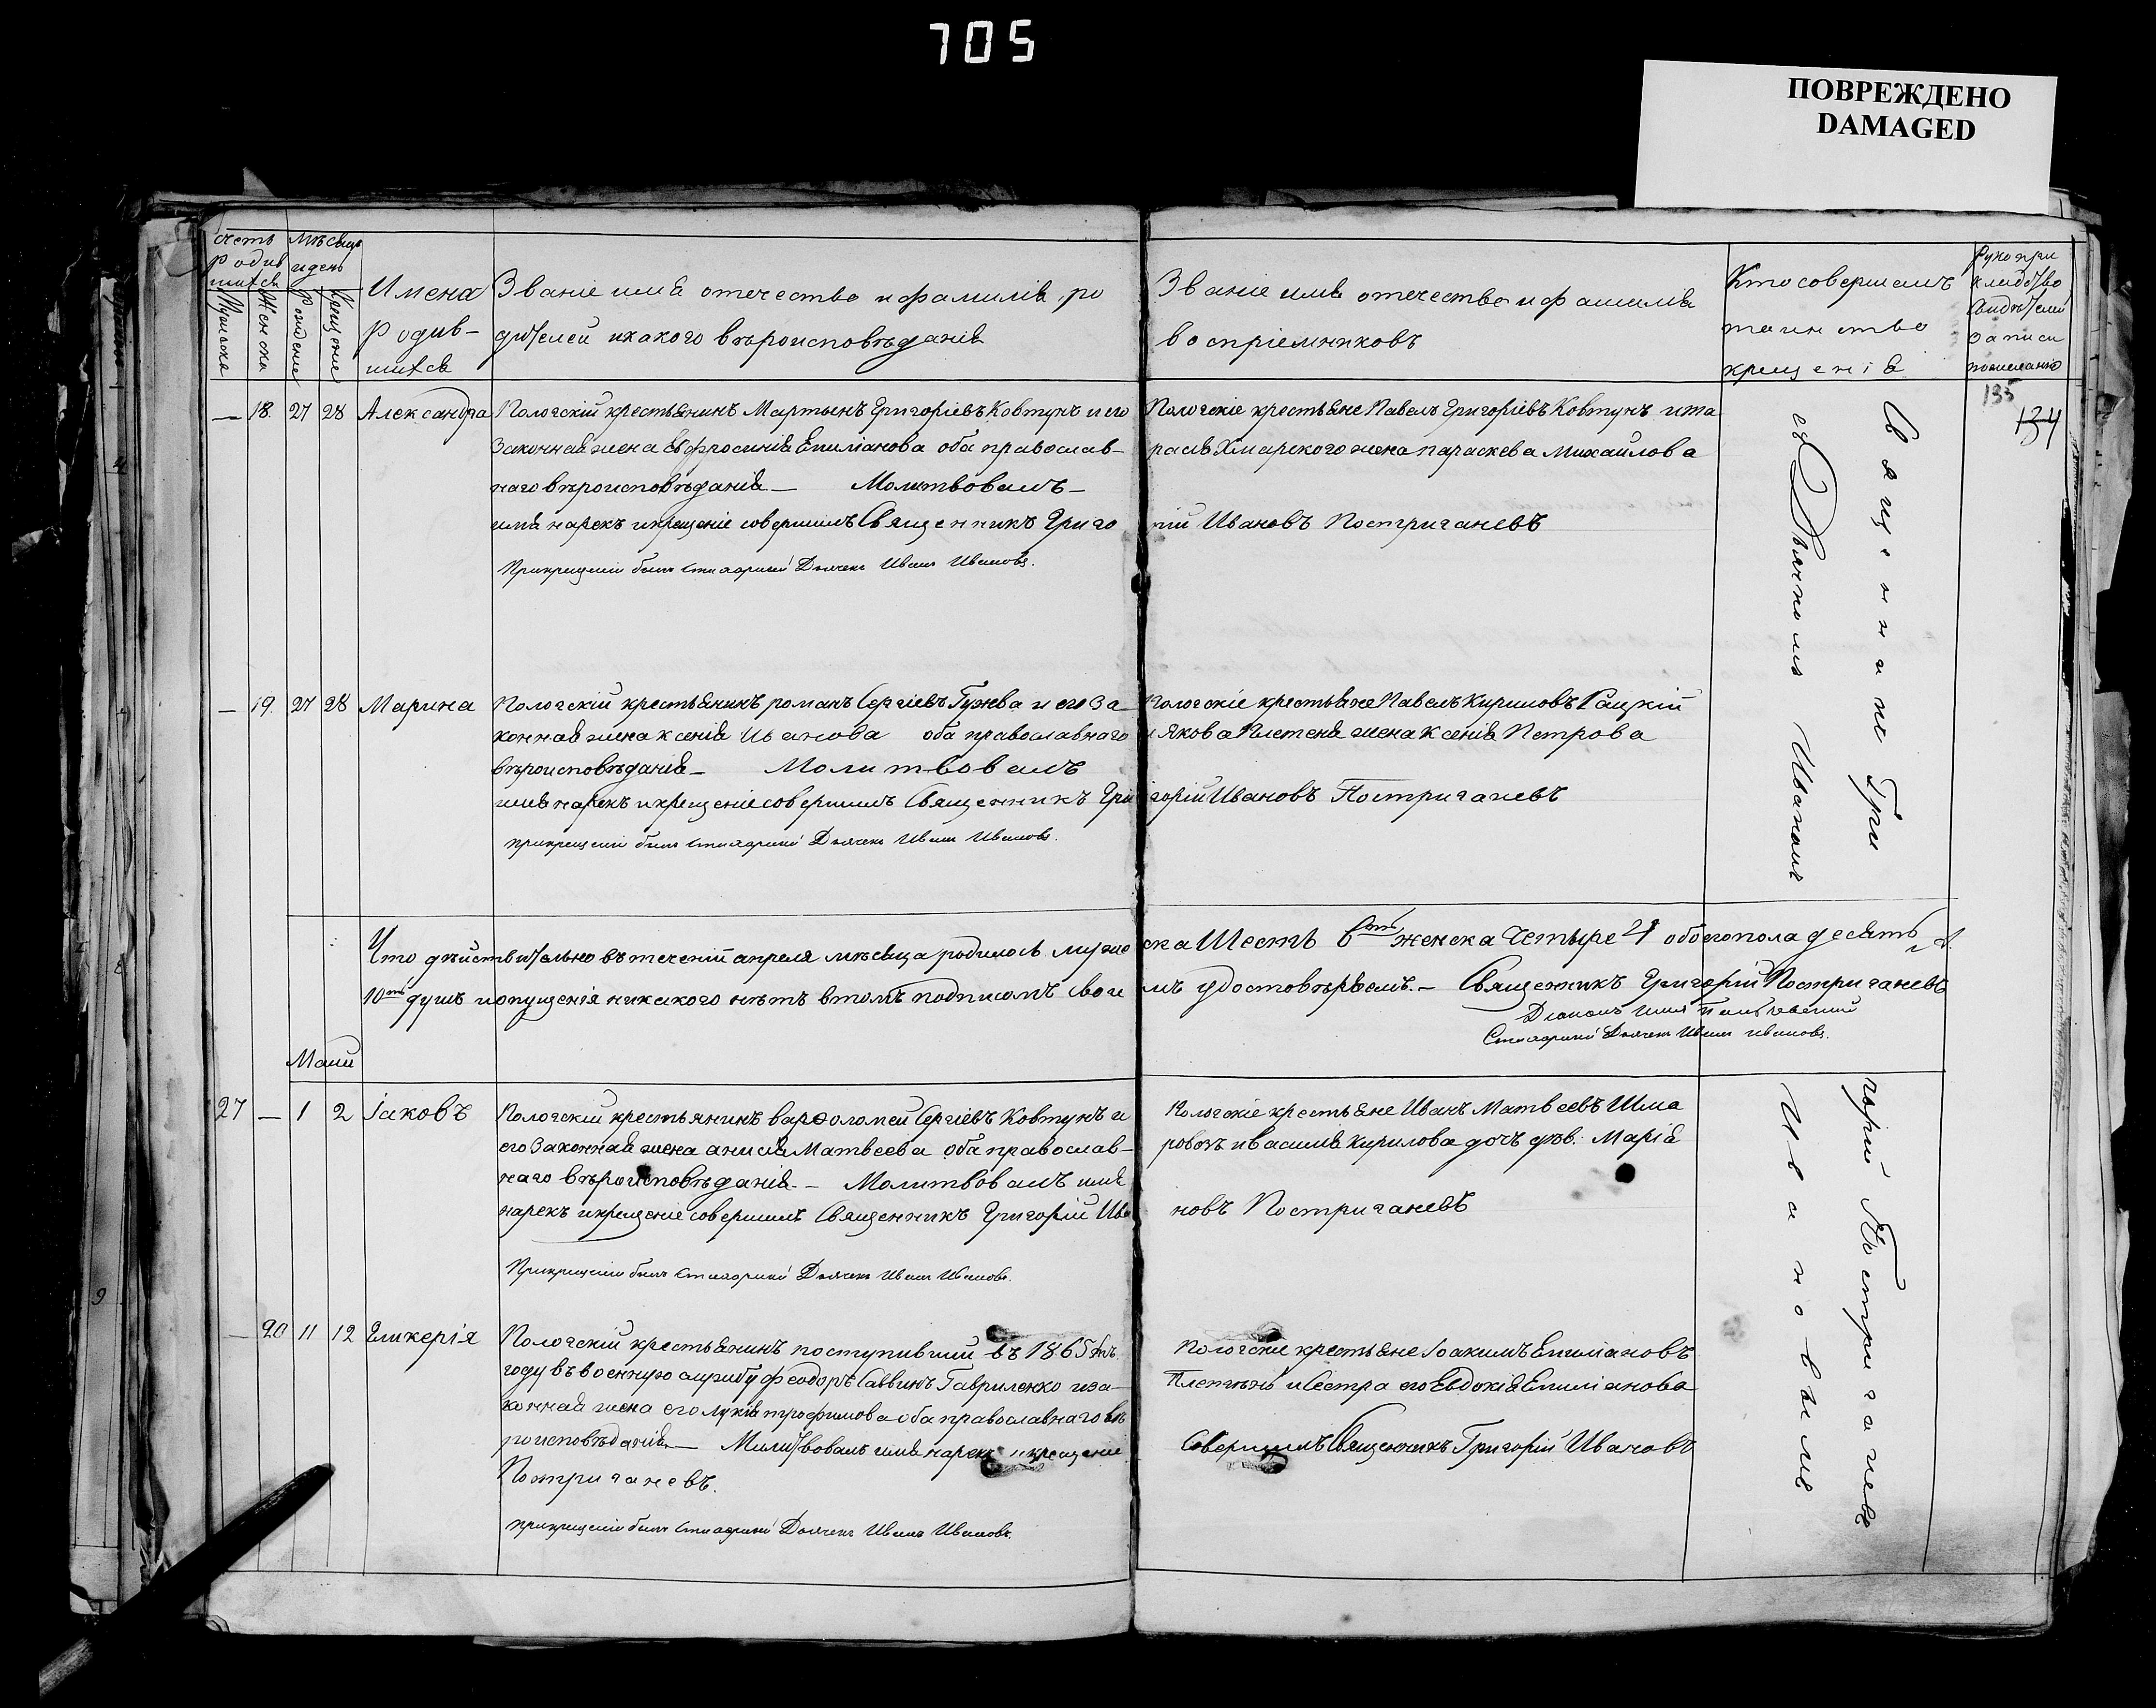 705
ПОВРЕЖДЕНО
DAMAGED
счетъ родившихся
Мужеска
Женска
мѣсяцъ и день
Рожденіе
Крещеніе
Имена
Родив-
шихся
Званіе имя отечество и фамилія ро
дителей и какого вѣроисповѣданія
Званіе имя отечество и фамилія
воспріемниковъ
Кто совершалъ
таинство
крещенія
Рукопри
кладство
свидѣтелей
записи
по желанію
135
134
— 18. 27 28 Александра
Пологскій крестьянинъ Мартынъ Григоріевъ Ковтунъ и его
законная жена Евфросинія Емиліанова оба православ-
наго вѣроисповѣданія — Молитвовалъ —
имя нарекъ и крещеніе совершилъ Священникъ Григо
При крещеніи былъ Стихарный Дьячекъ Иванъ Ивановъ.
Пологскіе крестьяне Павелъ Григоріевъ Ковтунъ и та
расія Хмарского жена параскева Михайлова
рій Ивановъ Постригачевъ
— 19. 27 28 Марина
Пологскій крестьянинъ романъ Сергіевъ Гужва и его за
конная жена ксенія Иванова оба православнаго
вѣроисповѣданія — Молитвовалъ
имя нарекъ и крещеніе совершилъ Священникъ Гри
при крещеніи былъ Стихарный Дьячекъ Иванъ Ивановъ.
Пологскіе крестьяне Павелъ Кириловъ Рацкій
и Якова Плетеня жена ксенія Петрова
горій Ивановъ Постригачевъ
Что дѣйствительно въ теченіи апреля мѣсяца родилось муже ска Шесть 6ть женска Четыре 4 обоего пола десять
10ть душъ и опущенія никакого нѣтъ в томъ подписомъ свои мъ удостовѣряемъ. — Священникъ Григорій Постригачевъ
Діаконъ
Стихарный Дьячекъ Иванъ Ивановъ.
Маій
27 — 1 2 Іаковъ
Пологскій крестьянинъ варѳоломей Сергіевъ Ковтунъ и
его законная жена анисія Матвеева оба православ-
наго вѣроисповѣданія — Молитвовалъ имя
нарекъ и крещеніе совершилъ Священникъ Григорій Ива
При крещеніи былъ Стихарный Дьячекъ Иванъ Ивановъ.
Пологскіе крестьяне Иванъ Матвеевъ Шма
ровозъ и василія Кирилова дочь дѣв. Марія
новъ Постригачевъ
— 20 11 12 Гликерія
Пологскій крестьянинъ поступившій въ 1865мъ
году въ военную службу Феодоръ Саввинъ Гавриленко и за-
конная жена его лукія трофимова оба православнаго вѣ
роисповѣданія — Молитвовалъ имя нарекъ и крещеніе
Постригачевъ.
при крещеніи былъ Стихарный Дьячекъ Иванъ Ивановъ.
Пологскіе крестьяне Іоакимъ Емиліановъ
Плетень и Сестра его Евдокія Емиліанова
Совершилъ Священникъ Григорій Ивановъ
Священникъ Гри
горій Постригачевъ
съ Дьячкомъ Иваномъ
Ивановымъ